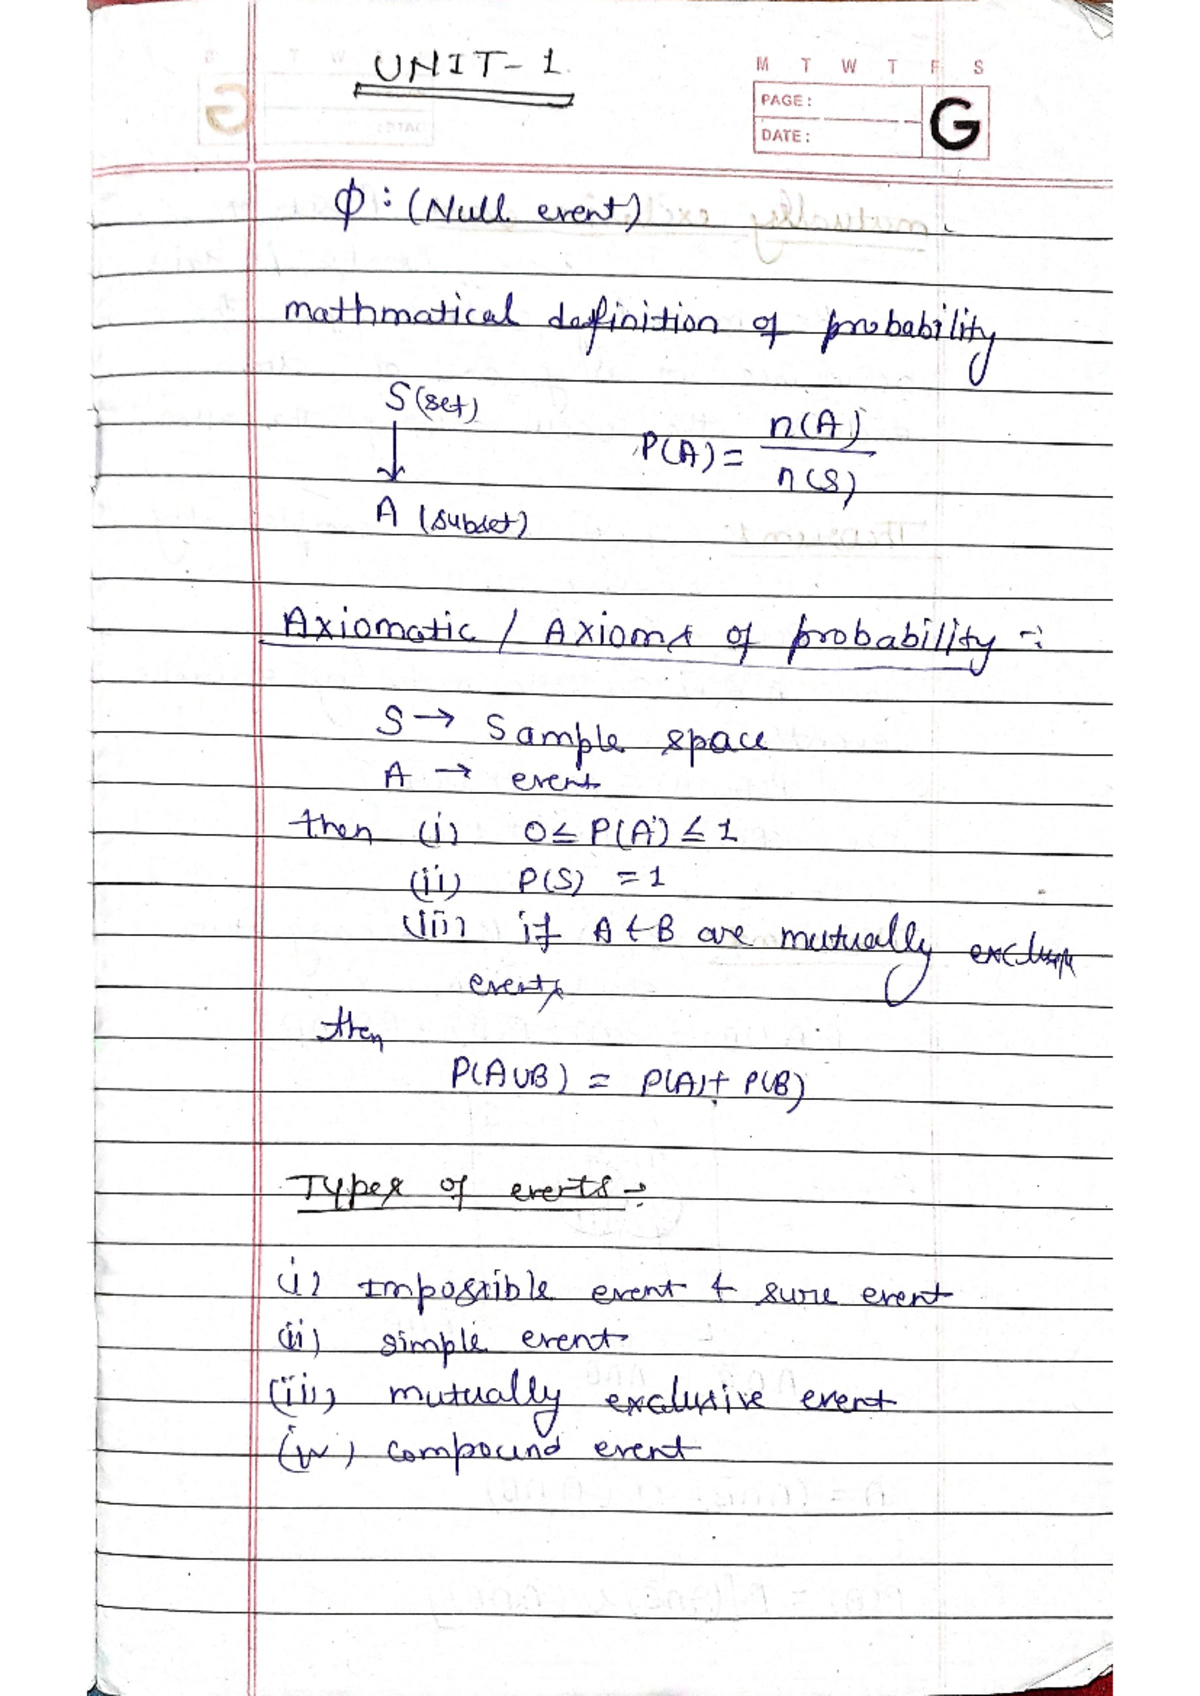 UNIT-1
M T W T F S
PAGE:
DATE:
G
ϕ: (Null event)
mathmatical definition of probability
S (set)
↓
A (subset)
P(A) = n(A) / n(S)
Axiomatic / Axioms of probability :-
S → Sample space
A → event
then (i) 0 ≤ P(A) ≤ 1
(ii) P(S) = 1
(iii) if A & B are mutually
events
then
P(A∪B) = P(A) + P(B)
Types of events :-
(i) Impossible event & sure event
(ii) simple event
(iii) mutually exclusive event
(iv) compound event